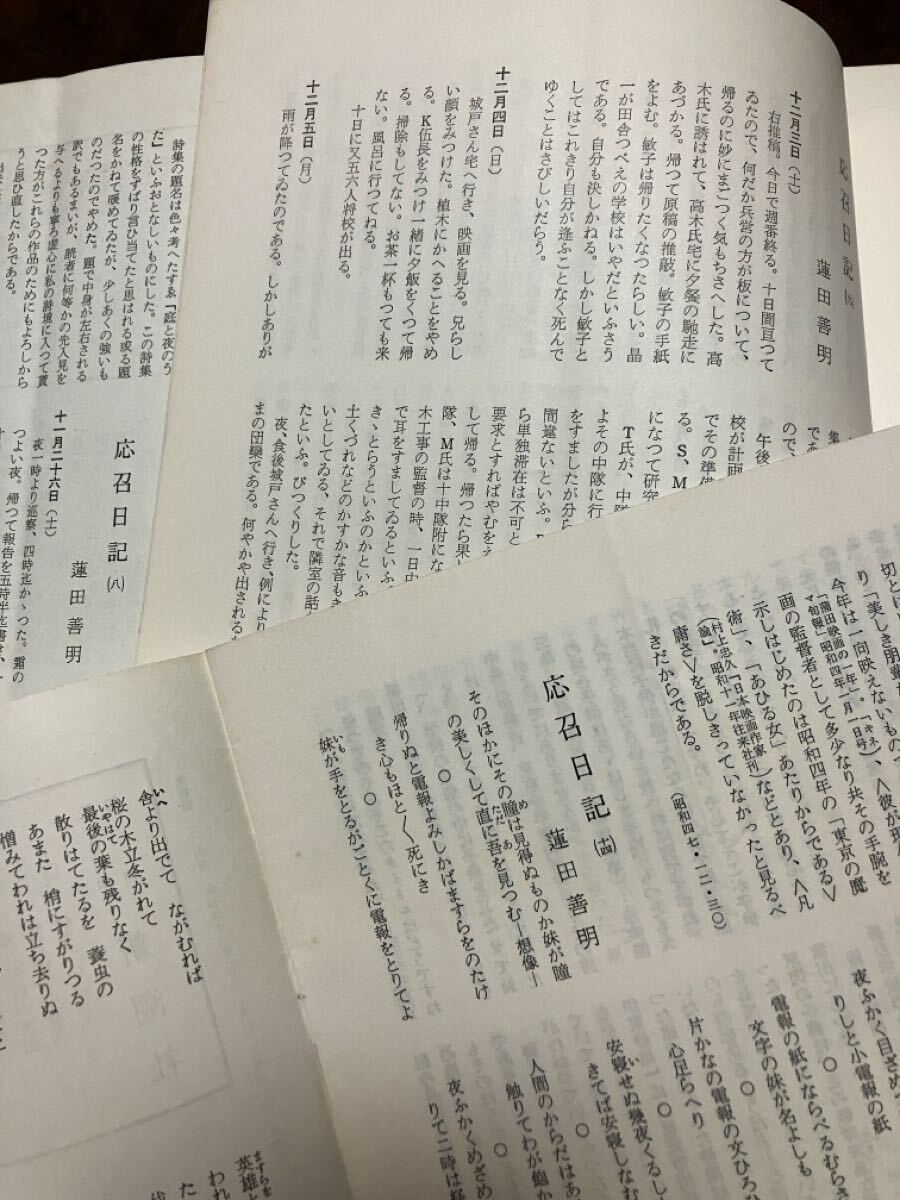 応召日記(九)
蓮田善明
十二月三日(土)
右推稿。今日で週番終る。十日間亘つて
ゐたので、何だか兵営の方が板について、
帰るのに妙にまごつく気もちさへした。高
木氏に誘はれて、高木氏宅に夕餐の馳走に
あづかる。帰つて原稿の推敲。敏子の手紙
をよむ。敏子は帰りたくなつたらしい。晶
一が田舎つぺえの学校はいやだといふさう
である。自分も決しかねる。しかし敏子と
してはこれきり自分が逢ふことなく死んで
ゆくことはさびしいだらう。
十二月四日(日)
城戸さん宅へ行き、映画を見る。兄らし
い顔をみつけた。植木にかへることをやめ
る。K伍長をみつけ一緒に夕飯をくつて帰
る。掃除もしてない。お茶一杯もつても来
ない。風呂に行つてねる。
十日に又五六人将校が出る。
十二月五日(月)
雨が降つてゐたのである。しかしありが
校が計画
でその準備
る。S、M
になつて研究
T氏が、中隊
よその中隊に行
をすましたが分ら
間違ないといふ。
ら単独滞在は不可と
要求とすればやむをえ
して帰る。帰つたら果し
隊、M氏は十中隊附にな
木工事の監督の時、一日中
で耳をすましてゐるといふ
きゝとらうといふのかといふ
土くづれなどのかすかな音もき
いとしてゐる、それで隣室の話も
たといふ。びつくりした。
夜、食後城戸さんへ行き、例により
まの団欒である。何やかや出される
詩集の題名は色々考へたすゑ「庭と夜のう
た」といふおとなしいものにした。この詩集
の性格をずばり言ひ当てたと思はれる或る題
名をかねて暖めてゐたが、少しあくの強いも
のだつたのでやめた。題で中身が左右される
訳でもあるまいが、読者に何等かの先入見を
与へるよりも寧ろ虚心に私の詩境に入つて貰
つた方がこれらの作品のためにもよろしから
うと思ひ直したからである。
応召日記(八)
蓮田善明
十一月二十六日(土)
夜一時より巡察、四時迄かゝつた。霜の
つよい夜。帰つて報告を五時半迄書き、
り「美しき朋輩
今年は一向映えないもので
「蒲田映画の一年」。「キネ
マ旬報」昭和四年一月一日号)、〈彼が現
画の監督者として多少なり共その手腕を
示しはじめたのは昭和四年の「東京の魔
術」、「あひる女」あたりからである〉
(村上忠久「日本映画作家
論」。昭和十一年往来社刊)などとあり、〈凡
庸さ〉を脱しきっていなかったと見るべ
きだからである。
(昭和四七・一二・三〇)
応召日記(十四)
蓮田善明
そのほかにその瞳は見得ぬものか妹が瞳
の美しくして直に吾を見つむ―想像―
○
帰りぬと電報よみしかばますらをのたけ
き心もほと〳〵死にき
○
妹が手をとるがごとくに電報をとりてよ
夜ふかく目ざめ
りしと小電報の紙
○
電報の紙にならべるむらさ
文字の妹が名よしも
○
片かなの電報の文ひろひ
心足らへり
○
安寝せぬ幾夜くるし
きてば安寝しなむ
○
人間のからだはあ
触りてわが飽か
○
夜ふかくめざめ
りて二時は
舎より出でて ながむれば
桜の木立冬がれて
最後の葉も残りなく
散りはてたるを 蓑虫の
あまた 梢にすがりつる
憎みてわれは立ち去りぬ
英雄と
われ